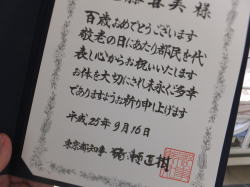 喜美 様
百歳おめでとうございます
敬老の日にあたり都民を代
表し心からお祝いいたします
お体を大切にされ末永く多幸
でありますようお祈り申し上げます
平成25年9月16日
東京都知事 猪瀬直樹